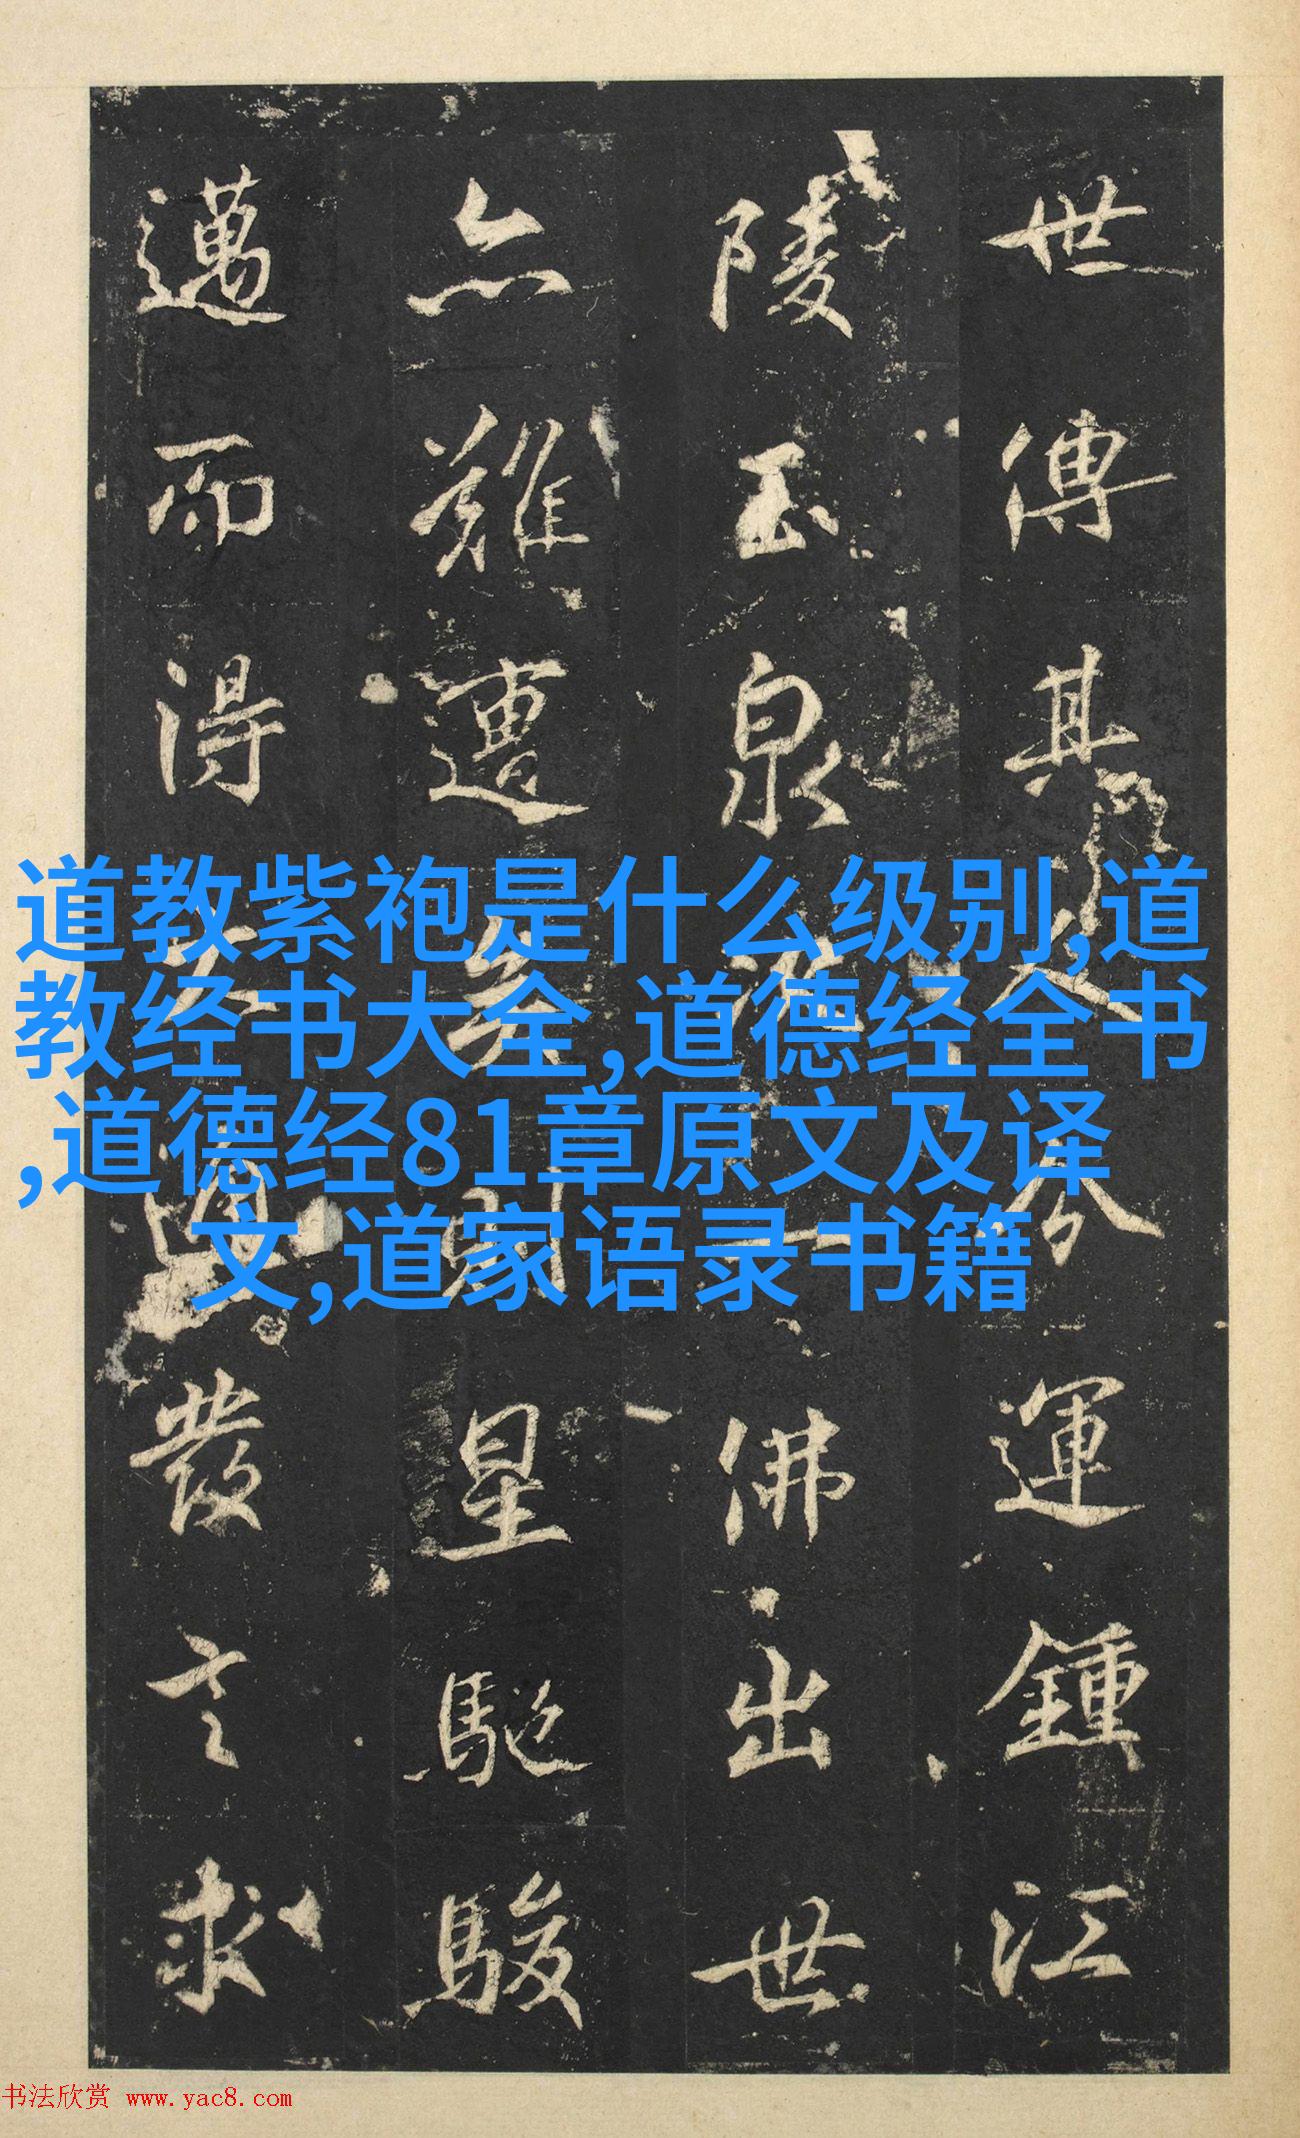 世傳其運鍾江
陵玉泉佛出世
亦難遭星馳駿
邁而得發言求
道教紫袍是什么级别,道
教经书大全,道德经全书
,道德经81章原文及译
文,道家语录书籍
书法欣赏 www.yac8.com